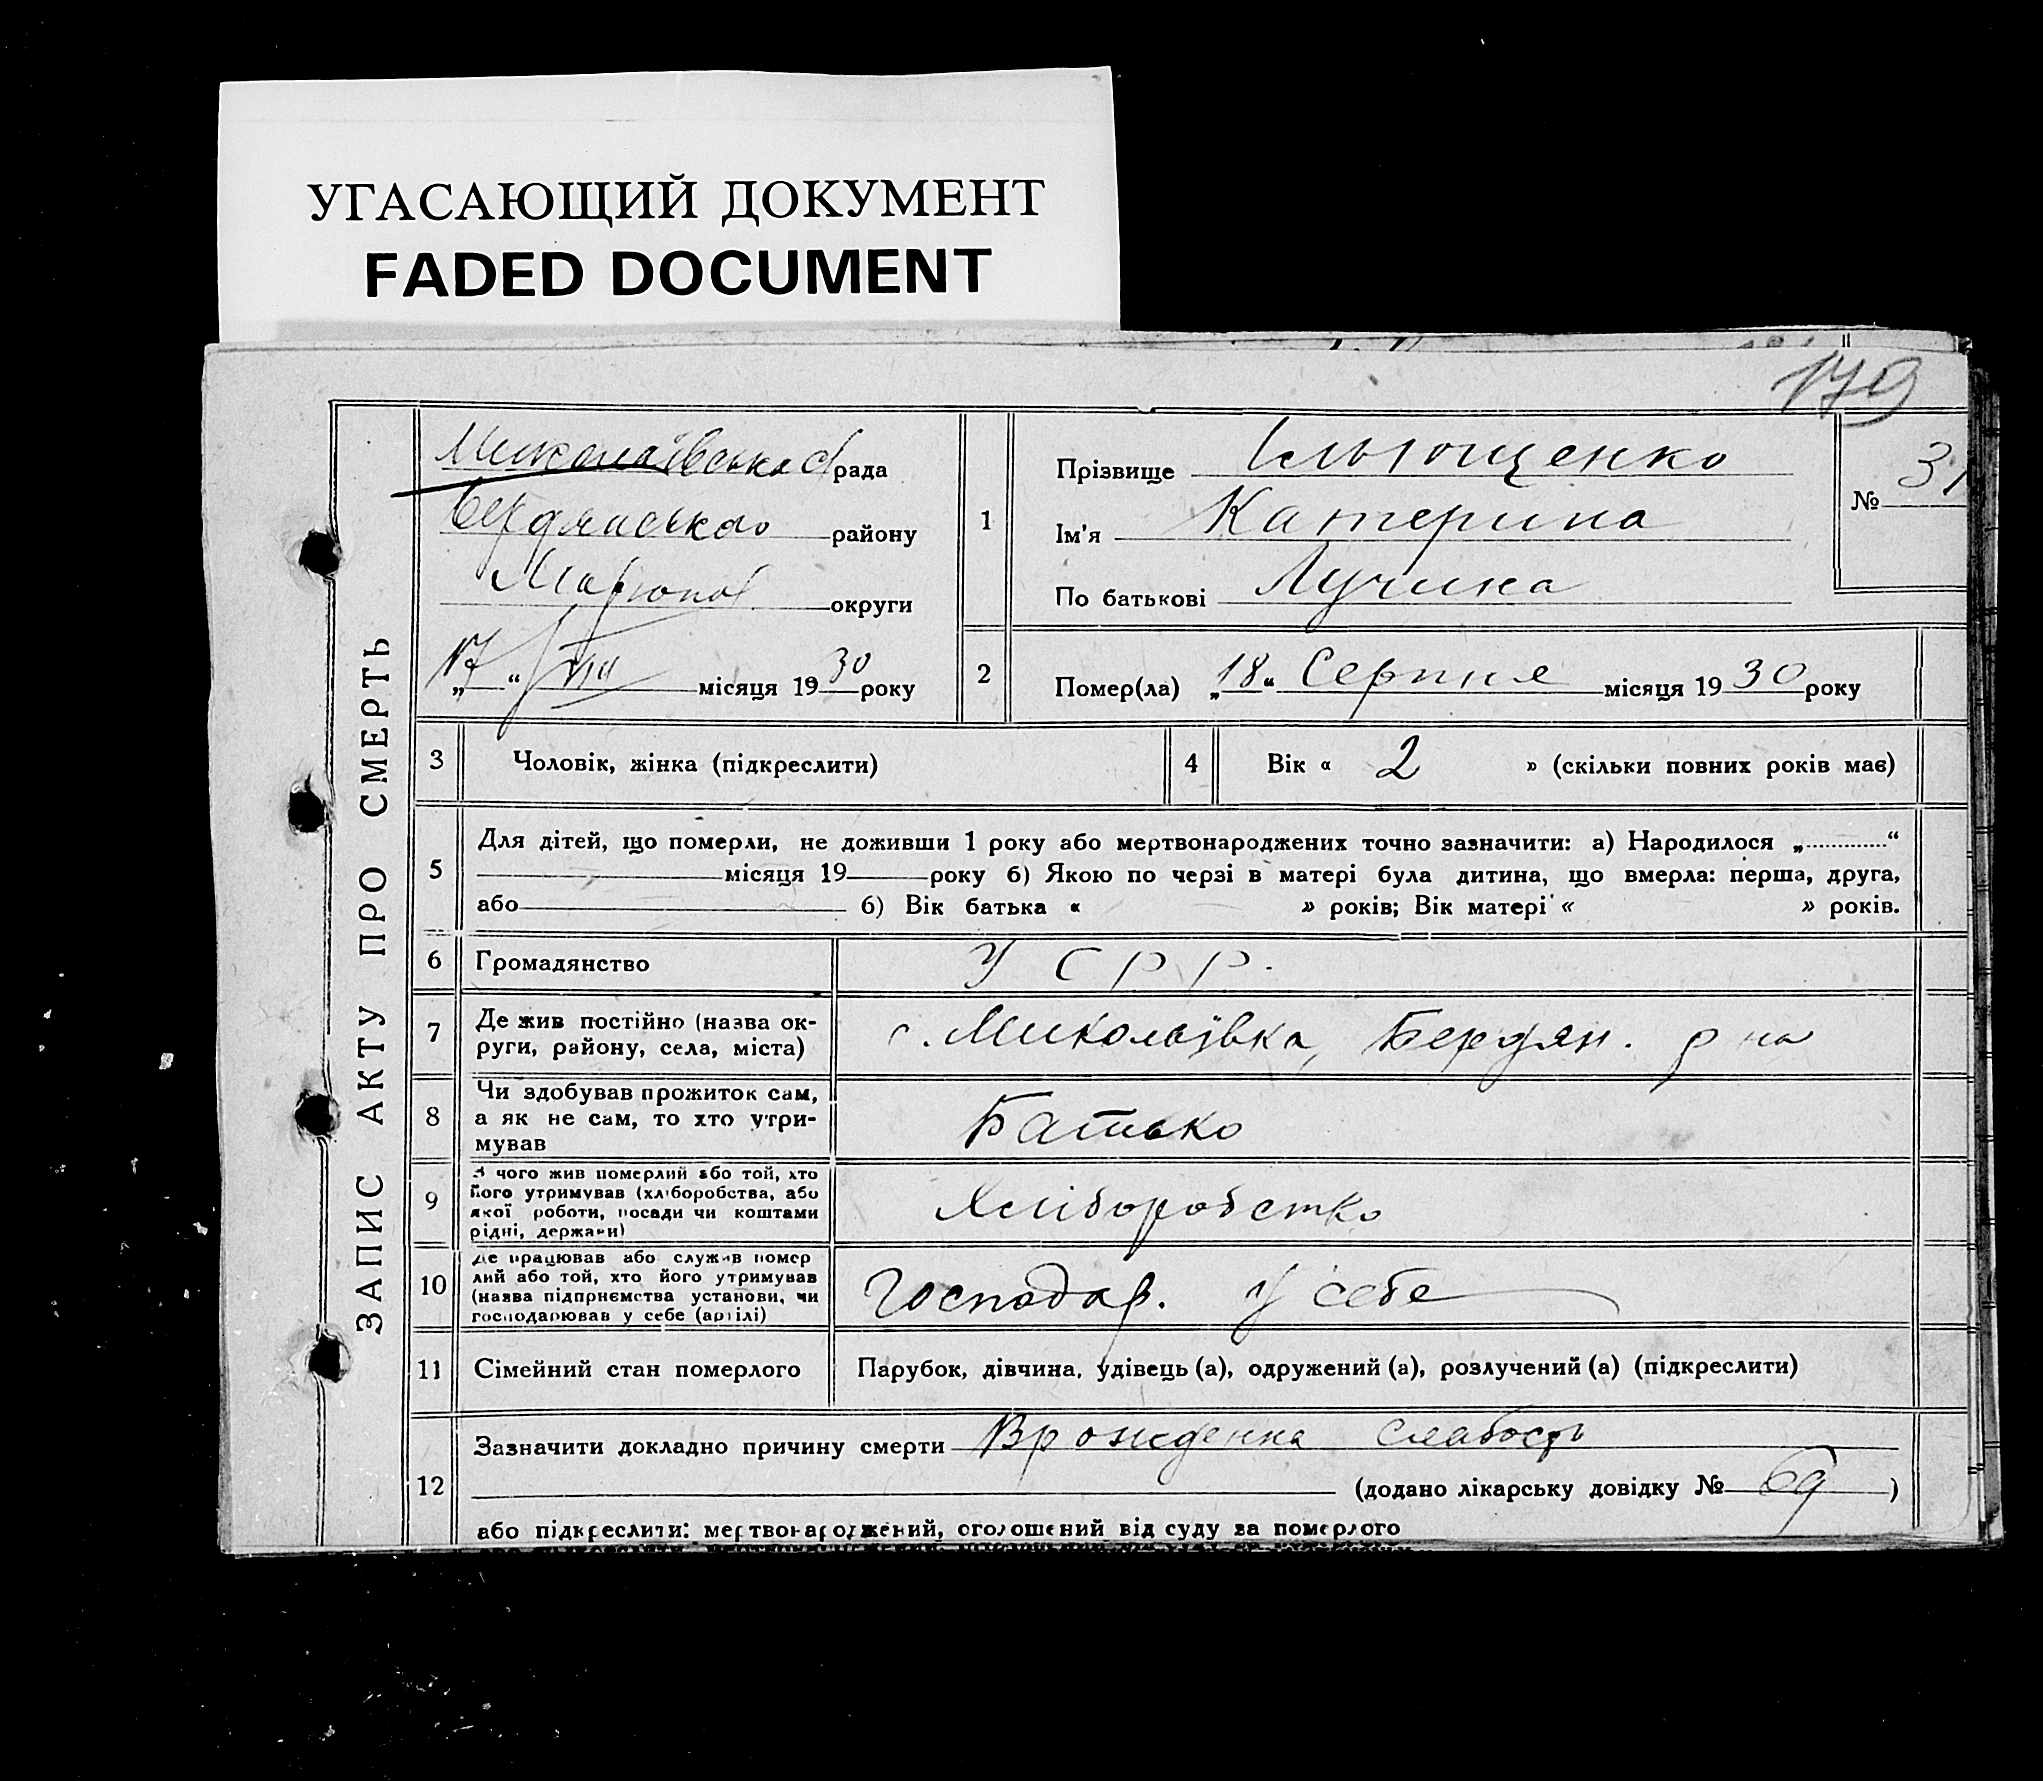 УГАСАЮЩИЙ ДОКУМЕНТ
FADED DOCUMENT
179
ЗАПИС АКТУ ПРО СМЕРТЬ
Миколаївська с/рада
Бердянського району
Маріюпол. округи
„17“ VIII місяця 1930 року
1
Прізвище Ільющенко
Ім'я Катерина
По батькові Лучина
№ 31
2
Помер(ла) „18“ Серпня місяця 1930 року
3 Чоловік, жінка (підкреслити)
4 Вік « 2 » (скільки повних років має)
5
Для дітей, що померли, не доживши 1 року або мертвонароджених точно зазначити: а) Народилося „ “
місяця 19 року б) Якою по черзі в матері була дитина, що вмерла: перша, друга,
або б) Вік батька « » років; Вік матері « » років.
6 Громадянство УСРР.
7 Де жив постійно (назва ок-
руги, району, села, міста)
с. Миколаївка, Бердян. р на
8
Чи здобував прожиток сам,
а як не сам, то хто утри-
мував
Батько
9
З чого жив померлий або той, хто
його утримував (хліборобства, або
якої роботи, посади чи коштами
рідні, держави)
Хліборобство
10
Де працював або служив помер
лий або той, хто його утримував
(назва підприємства установи, чи
господарював у себе (артілі)
Господар. У себе
11 Сімейний стан померлого
Парубок, дівчина, удівець (а), одружений (а), розлучений (а) (підкреслити)
12
Зазначити докладно причину смерти Врожденна слабость
(додано лікарську довідку № 69)
або підкреслити: мертвонароджений, оголошений від суду за померлого